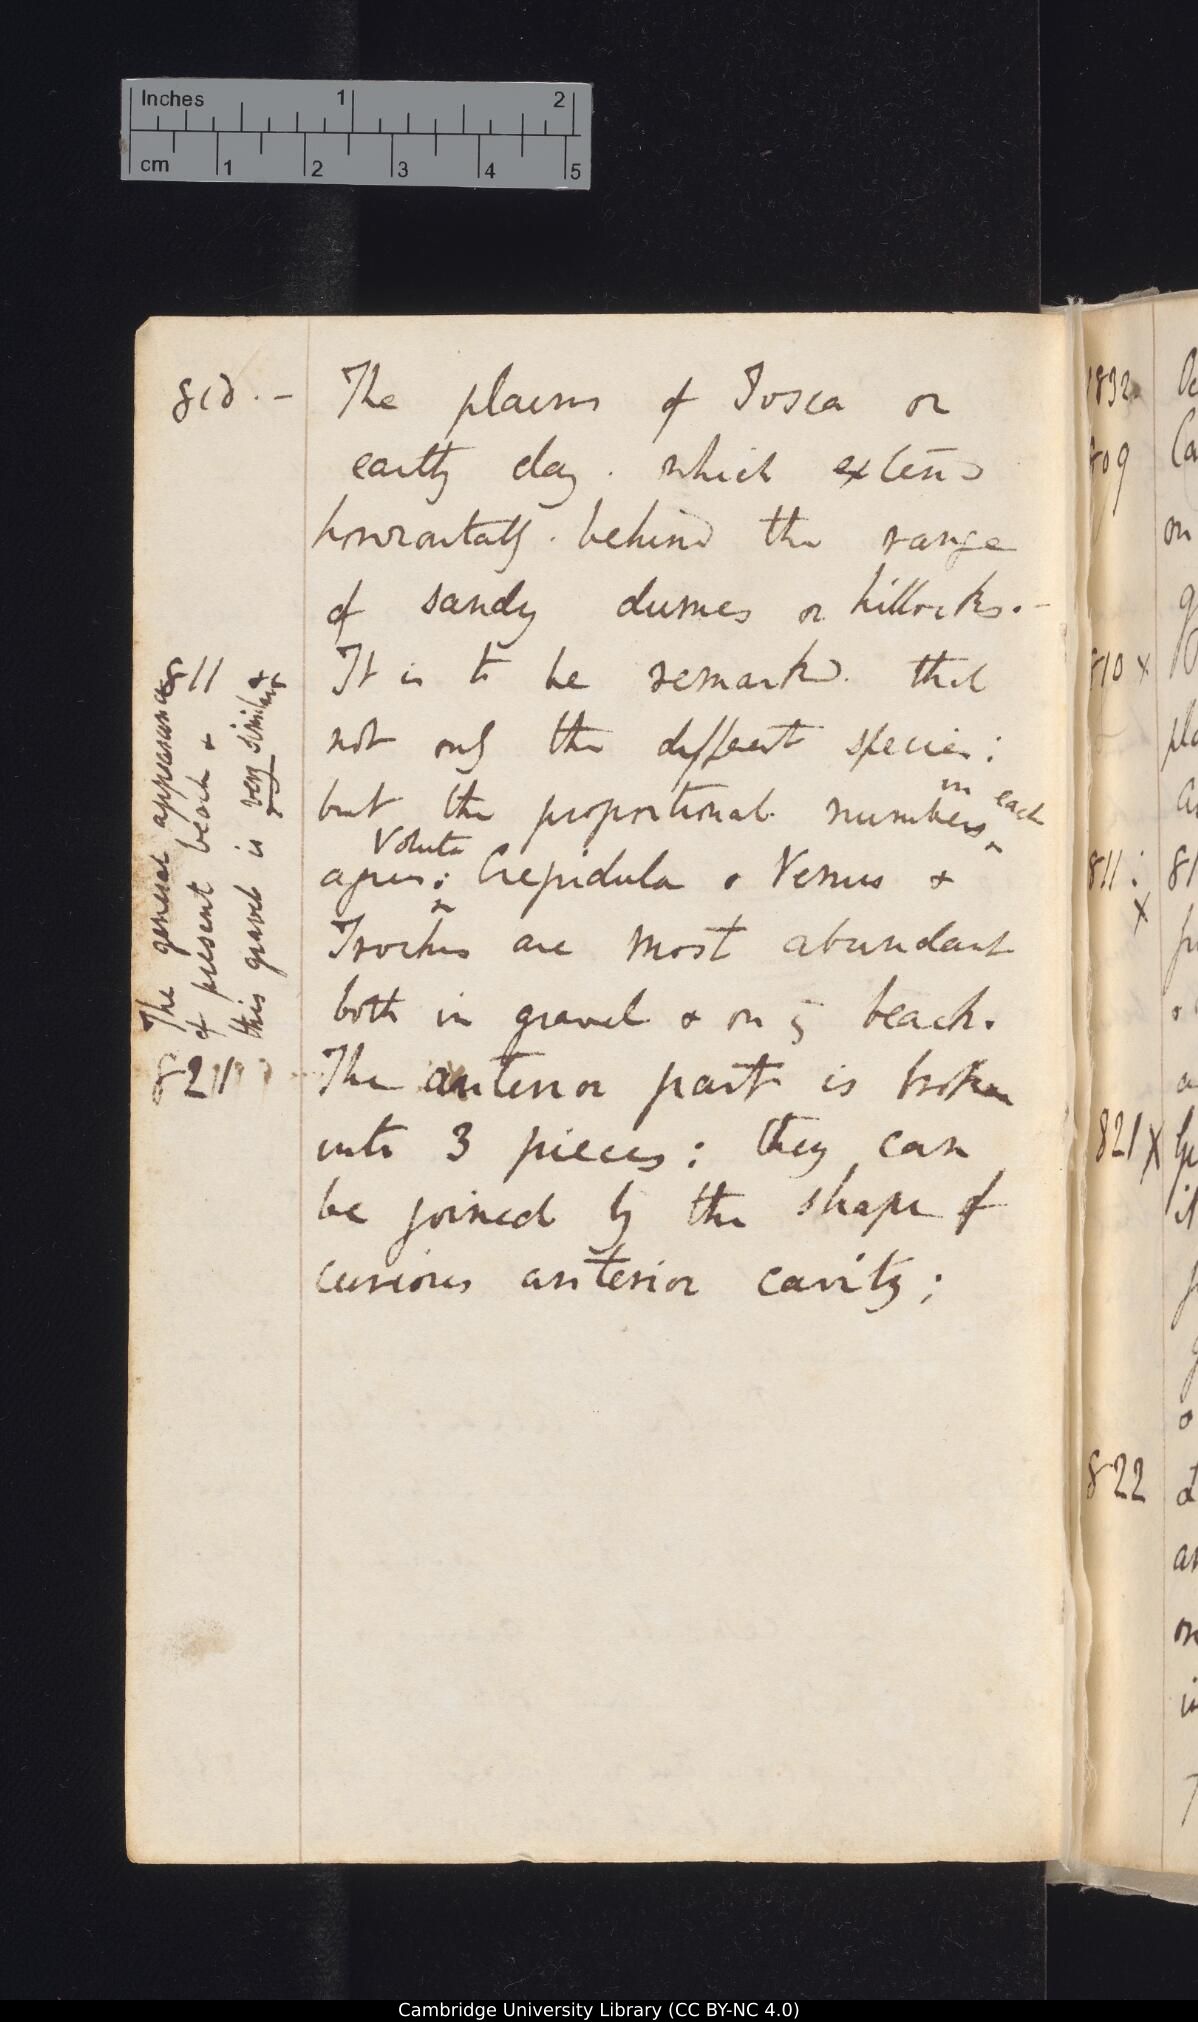 Inches 1 2
cm 1 2 3 4 5
810. - The plains of Tosca or
earthy clay. which extend
horizontally. behind the range
of sandy dunes or hillocks. -
811 It is to be remarked. that
not only the different species:
but the proportional numbers in each
agree: Voluta Crepidula & Venus &
Trochus are most abundant
both in gravel & on ye beach.
The general appearance
of present beach &
this gravel is very similar
821 The anterior part is broken
into 3 pieces: they can
be joined by the shape of
curious anterior cavity;
1832
809
on
810 x
811:
x
821 X
822
Cambridge University Library (CC BY-NC 4.0)